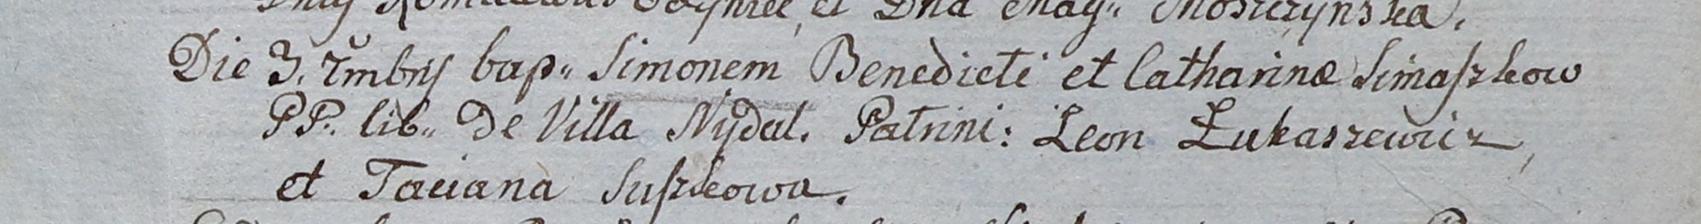 et Dna Magd: Moszczynska.
Die 3. Xmbris bap: Simonem Benedicti et Catharinæ Simaszkow
PP. lib: De Villa Nijdal. Patrini: Leon Łukaszewicz,
et Taciana Suszkowa.